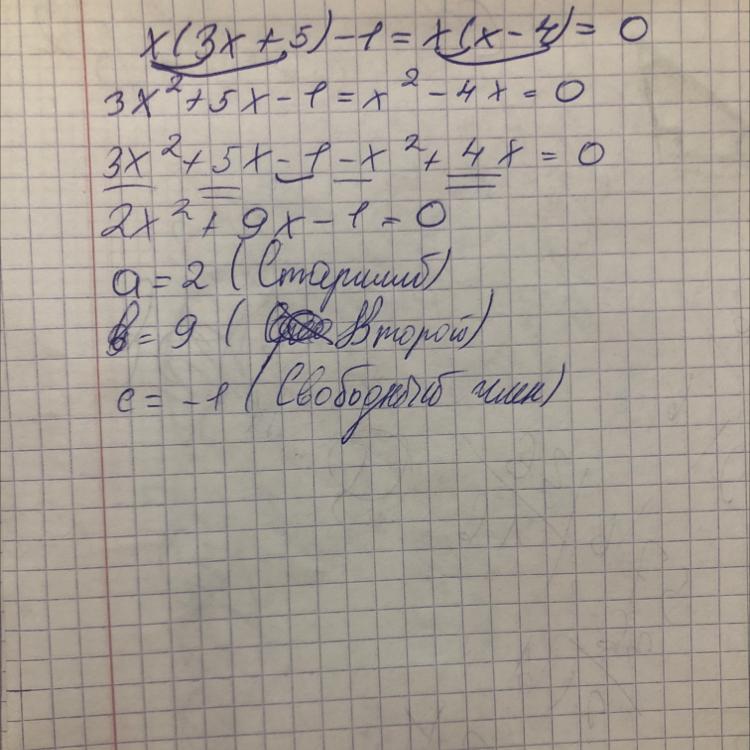 x(3x+5)-1=x(x-4)=0
3x²+5x-1=x²-4x=0
3x²+5x-1-x²+4x=0
2x²+9x-1=0
a=2 (Старший)
b=9 (Второй)
c=-1 (Свободный член)